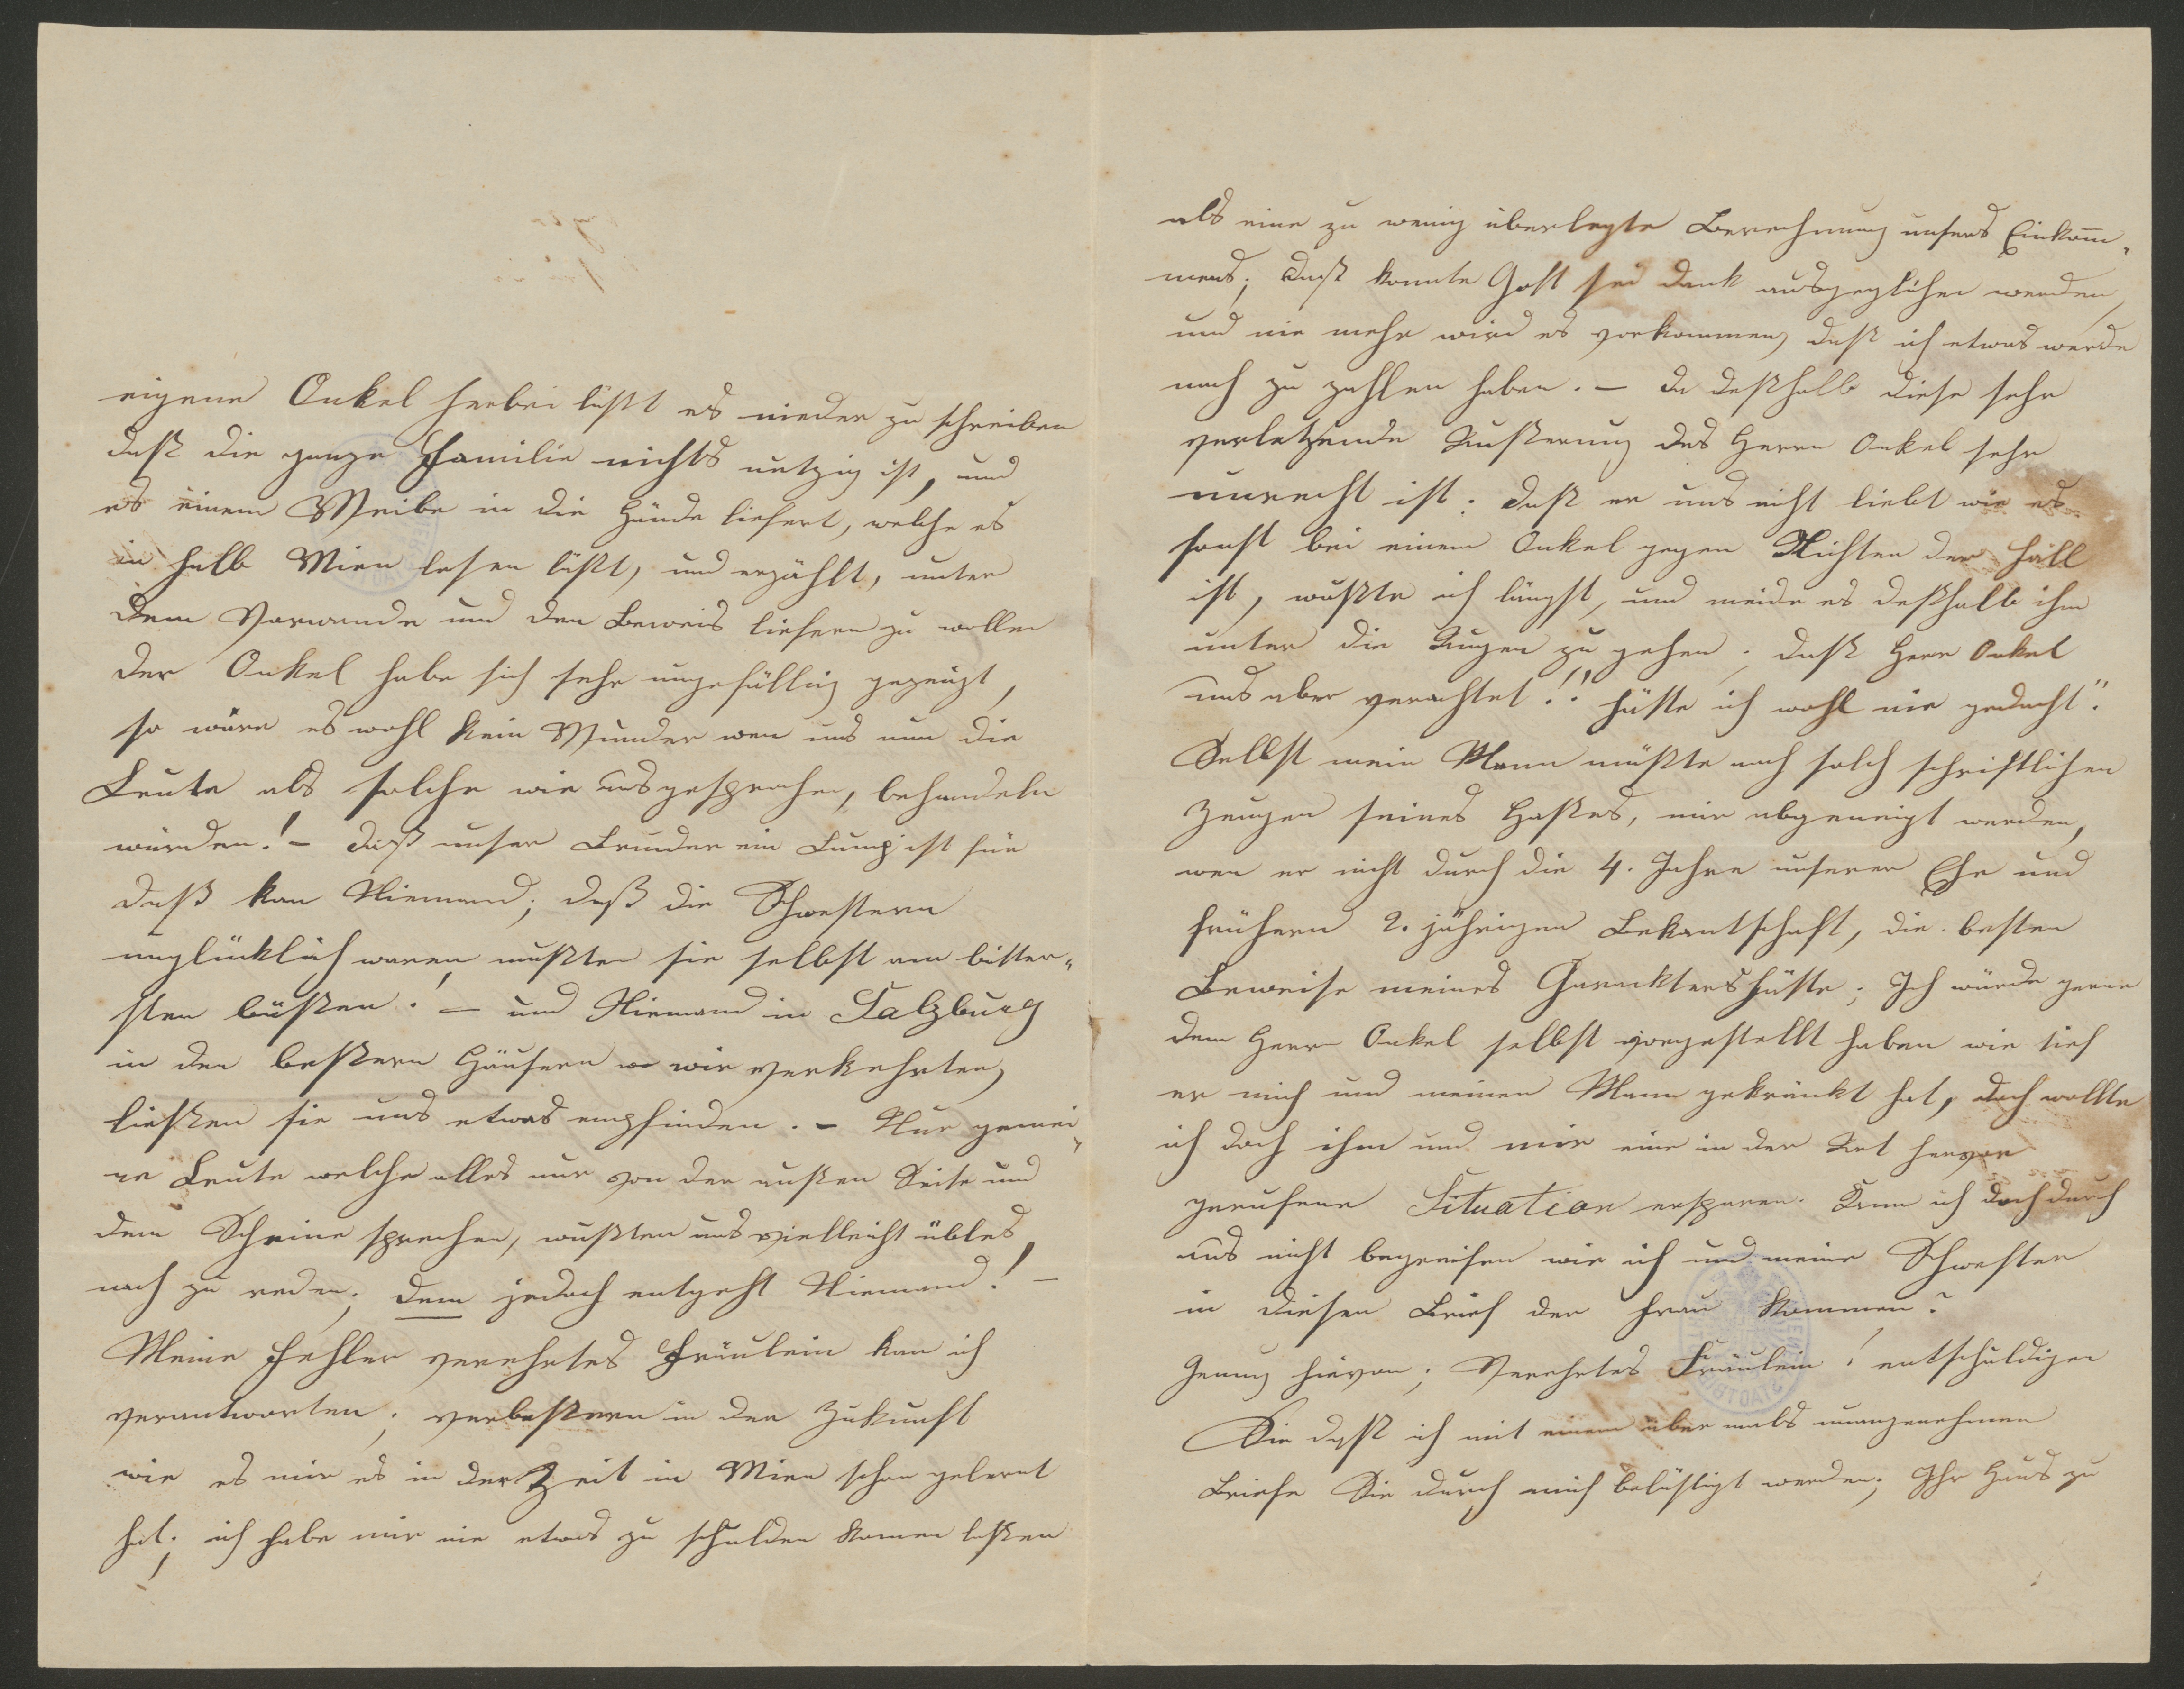 eigene Onkel herbei läßt es nieder zu schreiben
daß die ganze Familie nichts nutzig ist, und
es einem Weibe in die Hände liefert, welche es
in halb Wien lesen läßt, und erzählt, unter
dem Vorwande uns den Beweis liefern zu wollen
der Onkel habe sich sehr ungefällig gezeigt,
so wäre es wohl kein Wunder wen uns nun die
Leute als solche wie ausgesprochen, behandeln
würden! – Daß unser Bruder ein Lump ist für
daß kan Niemand; daß die Schwestern
unglücklich waren, mußten sie selbst am bitter„
sten büßen! – und Niemand in Salzburg
in den beßern Häusern wo wir verkehrten,
ließen sie uns etwas empfinden. – Nur gemei„
ne Leute welche alles nur von der außen Seite und
dem Scheine sprechen, wußten uns vielleicht übles
nach zu reden; dem jedoch entgeht Niemand! –
Meine Fehler verehrtes Fräulein kan ich
verantworten, verbeßern in der Zukunft
wie es mir es in der Zeit in Wien schon gelernt
hat; ich habe mir nie etwas zu schulden komen laßen
als eine zu wenig überlegte Berechnung unsers Einkom̄„
mens; daß konnte Gott sei dank ausgeglichen werden,
und nie mehr wird es vorkommen, daß ich etwas werde
nach zu zahlen haben. – Da deßhalb diese sehr
verletzende Äußerung des Herrn Onkel sehr
unrecht ist; daß er uns nicht liebt wie es
sonst bei einem Onkel gegen Nichten der Fall
ist, wußte ich längst, und meide es deßhalb ihm
unter die Augen zu gehen; daß Herr Onkel
uns aber verachtet!! hätte ich wohl nie gedacht".
Selbst mein Mann müßte nach solch schriftlichen
Zeugen seines Haßes, mir abgeneigt werden,
wen er nicht durch die 4. Jahre unserer Ehe und
frühern 2. jährigen Bekantschaft, die besten
Beweise meines Charakters hätte; Ich würde gerne
dem Herrn Onkel selbst vorgestellt haben wie tief
er mich und meinen Mann gekränkt hat, doch wollte
ich doch ihm und mir eine in der Art hervor
gerufene Situation ersparen. Kann ich doch durch
aus nicht begreifen wie ich und meine Schwester
in diesen Brief der Frau kommen?
Genug hievon; Verehrtes Fräulein! entschuldigen
Sie daß ich mit einem aber mals unangenehmen
Briefe Sie durch mich belästigt werden; Ihr Haus zu